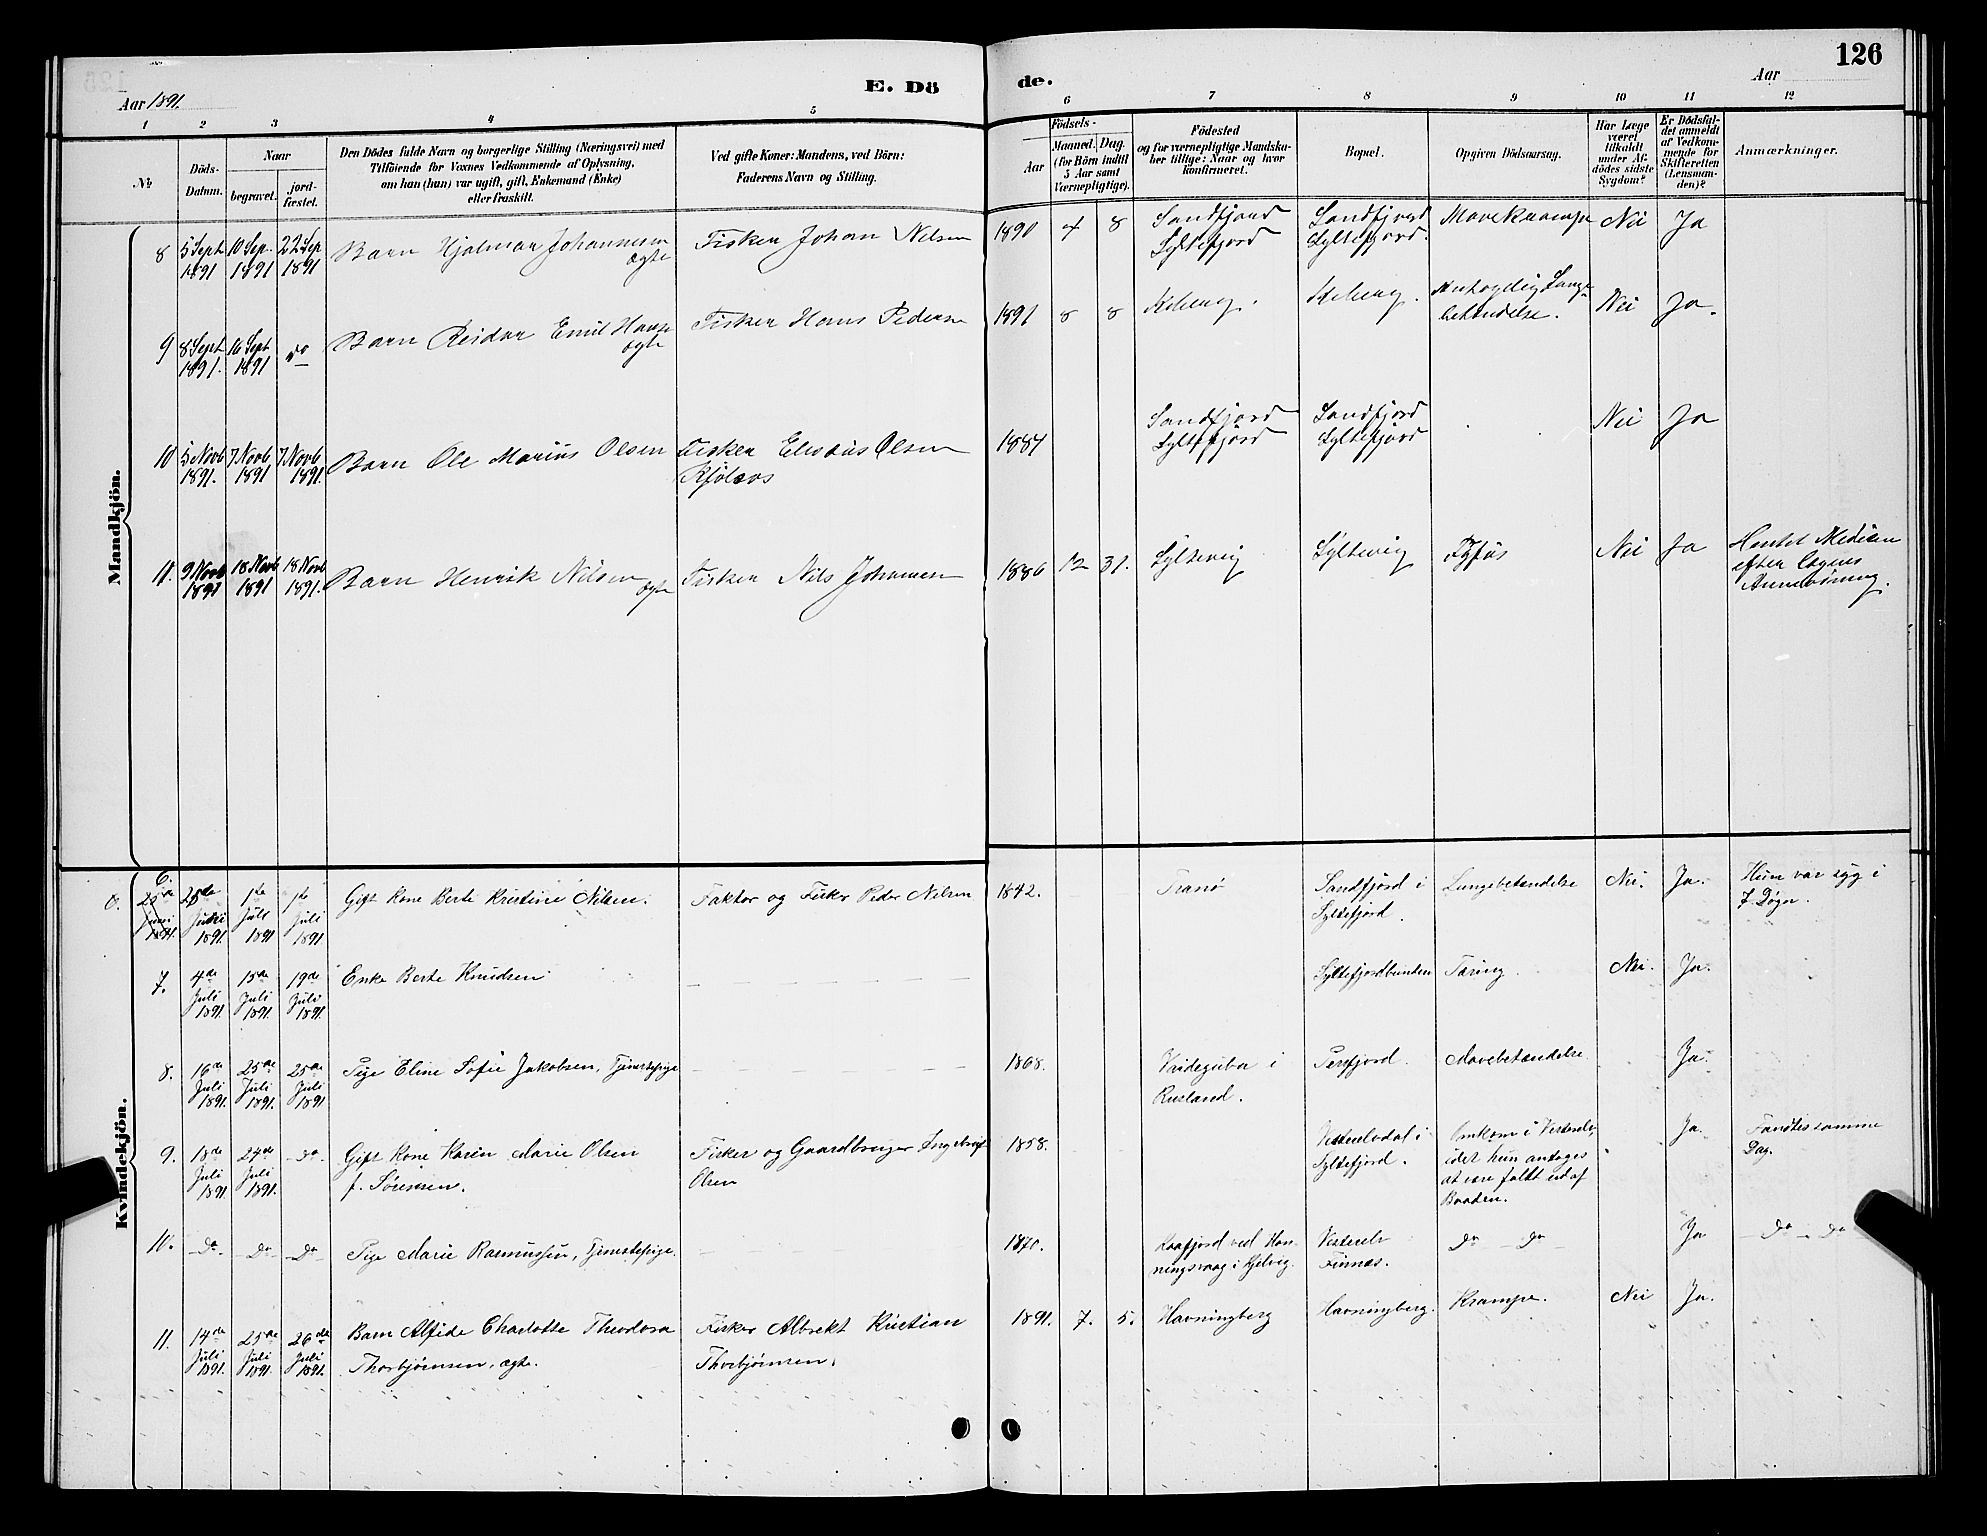 126
Aar 1891.
E. Dö
de.
Aar
1 2 3 4 5 6 7 8 9 10 11 12
№
Döds-
Datum.
Naar
begravet.
jord-
fæstet.
Den Dödes fulde Navn og borgerlige Stilling (Næringsvei) med
Tilföiende for Voxnes Vedkommende af Oplysning,
om han (hun) var ugift, gift, Enkemand (Enke)
eller fraskilt.
Ved gifte Koner: Mandens, ved Börn:
Faderens Navn og Stilling.
Födsels-
Aar
Maaned.
Dag.
(for Börn indtil
5 Aar samt
Værnepligtige).
Födested
og for værnepligtige Mandska-
ber tillige: Naar og hvor
konfirmeret.
Bopæl.
Opgiven Dödsaarsag.
Har Læge
været
tilkaldt
under Af-
dödes sidste
Sygdom?
Er Dödsfal-
det anmeldt
af Vedkom-
mende for
Skifteretten
(Lensman-
den)?
Anmærkninger.
Mandkjön.
8 5 Sept 10 Sep. 22 Sep Barn Hjalmar Johannesen Fisker Johan Nilsen 1890 4 8 Sandfjord Sandfjord Mavekrampe Nei Ja
1891 1891 1891 ægte Syltefjord Syltefjord.
9 8 Sept 16 Sept do Barn Reidar Emil Hansen Fisker Hans Pedersen 1891 8 8 Kiberg. Kiberg. Lunge- Nei Ja.
1891. 1891 ægte betændelse.
10 5 Novb 7 Novb 7 Novb Barn Ole Marius Olsen Fisker Elisæus Olsen 1884 Sandfjord Sandfjord Nei Ja
1891. 1891 1891. Syltefjord Syltefjord
11. 9 Novb 18 Novb 18 Novb Barn Henrik Nilsen Fisker Nils Johansen 1886 12 31. Syltevig Syltevig Tyfus Nei Ja Hentet Medisin
1891 1891 1891. ægte efter Lægens
Anvisning.
Kvindekjön.
6. 25de 1te 1te Gift Kone Berte Kristine Nilsen. Faktor og Fisker Peder Nilsen 1842. Tranö Sandfjord i Lungebetændelse Nei. Ja. Hun var syg i
Juni Juli Juli Syltefjord. 7 Døgn.
1891. 1891 1891
7. 4de 15de 19de Enke Berte Knudsen Syltefjordbunden Tæring. Nei. Ja.
Juli Juli Juli
1891. 1891. 1891.
8. 16de 25de 25de Pige Eline Sofie Jakobsen, Tjenestepige 1868. Vaideguba i Persfjord. Mavebetændelse. Ja.
Juli Juli Juli Rusland.
1891. 1891. 1891
9. 18de 24de do. Gift Kone Karen Marie Olsen Fisker og Gaardbruger Ingebrigt 1858. Vesterelvdal i Omkom i Vesterelv, Ja. Fandtes samme
Juli Juli f. Sørensen. Olsen Syltefjord. idet hun antages Dag.
1891. 1891. at være faldt ud af
Baaden.
10. Do Do Do Pige Marie Rasmussen, Tjenestepige. 1870. Kaafjord ved Hon- Vesterelv Do Do Ja Do Do
ningsvaag i Kjelvig. Finnæs.
11. 14de 25de 26de Barn Alfide Charlotte Theodora Fisker Albrekt Kristian 1891. 7. 5. Havningberg Havningberg. Krampe. Nei Ja.
Juli Juli Juli Thorbjørnsen, ægte. Thorbjørnsen.
1891. 1891. 1891.